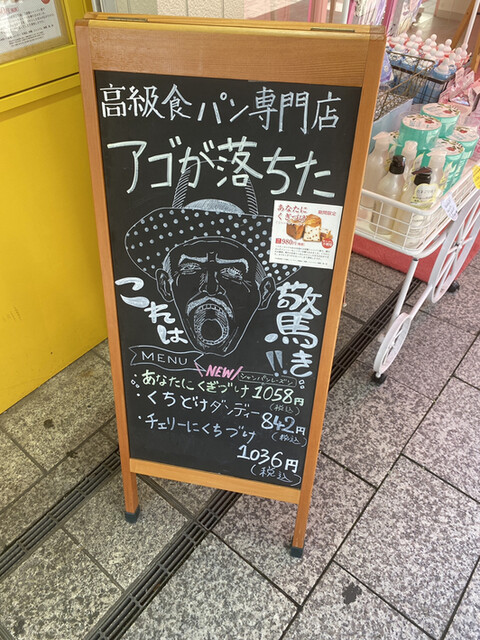 高級食パン専門店
アゴが落ちた
あなたに
くぎづけ
期間限定
980円
これは
驚き!!
MENU
NEW!
シャンパンレーズン
・あなたにくぎづけ 1058円
(税込)
・くちどけダンディー 842円
(税込)
・チェリーにくちづけ
1036円
(税込)